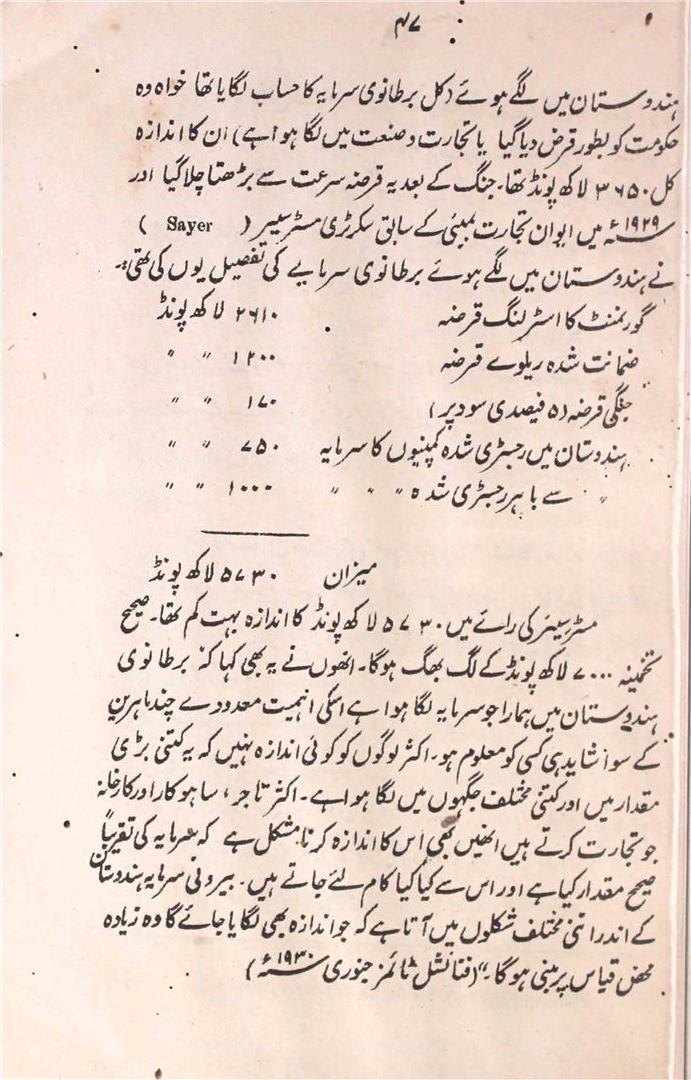 ۴۷
ہندوستان میں لگے ہوئے (کل برطانوی سرمایہ کا حساب لگایا تھا خواہ وہ
حکومت کو بطور قرض دیا گیا یا تجارت و صنعت میں لگا ہوا ہے) ان کا اندازہ
کل ۳۶۵۰ لاکھ پونڈ تھا۔ جنگ کے بعد یہ قرضہ سرعت سے بڑھتا چلا گیا اور
۱۹۲۹ء میں ایوان تجارت بمبئی کے سابق سکرٹری مسٹر سیّیر (Sayer)
نے ہندوستان میں لگے ہوئے برطانوی سرمایے کی تفصیل یوں کی تھی:۔
گورنمنٹ کا اسٹرلنگ قرضہ ۲۶۱۰ لاکھ پونڈ
ضمانت شدہ ریلوے قرضہ ۱۲۰۰ " "
جنگی قرضہ (۵ فیصدی سود پر) ۱۷۰ " "
ہندوستان میں رجسٹری شدہ کمپنیوں کا سرمایہ ۷۵۰ " "
" سے باہر رجسٹری شدہ " " " ۱۰۰۰ " "
میزان ۵۷۳۰ لاکھ پونڈ
مسٹر سیّیر کی رائے میں ۵۷۳۰ لاکھ پونڈ کا اندازہ بہت کم تھا۔ صحیح
تخمینہ ۷۰۰۰ لاکھ پونڈ کے لگ بھگ ہوگا۔ انھوں نے یہ بھی کہا کہ "برطانوی
ہندوستان میں ہمارا جو سرمایہ لگا ہوا ہے اسکی اہمیت معدودے چند ماہرین
کے سوا شاید ہی کسی کو معلوم ہو۔ اکثر لوگوں کو کوئی اندازہ نہیں کہ یہ کتنی بڑی
مقدار میں اور کتنی مختلف جگہوں میں لگا ہوا ہے۔ اکثر تاجر، ساہوکار اور کارخانہ
جو تجارت کرتے ہیں انھیں بھی اس کا اندازہ کرنا مشکل ہے کہ سرمایہ کی تقریباً
صحیح مقدار کیا ہے اور اس سے کیا کیا کام لئے جاتے ہیں۔ بیرونی سرمایہ ہندوستان
کے اندر اتنی مختلف شکلوں میں آتا ہے کہ جو اندازہ بھی لگایا جائے گا وہ زیادہ
محض قیاس پر مبنی ہوگا۔" (فنانشل ٹائمز جنوری ۱۹۳۰ء)